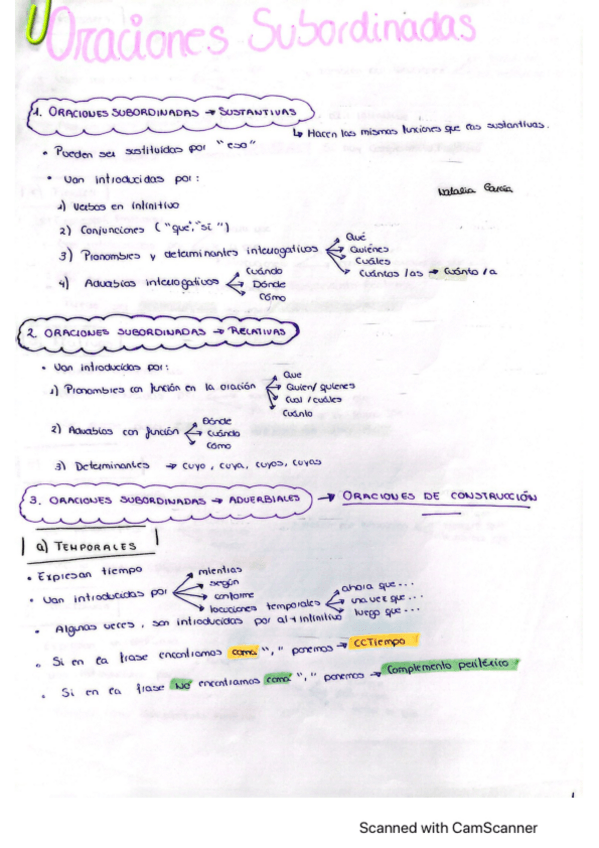 Oraciones Subordinadas
1. ORACIONES SUBORDINADAS → SUSTANTIVAS
↳ Hacen las mismas funciones que los sustantivos.
• Pueden ser sustituidas por "eso"
• Van introducidas por:
Natalia García
1) Verbos en infinitivo
2) Conjunciones ("que", "si")
3) Pronombres y determinantes interrogativos
Qué
Quiénes
Cuáles
Cuántos/as → Cuánto/a
4) Adverbios interrogativos
Cuándo
Dónde
Cómo
2. ORACIONES SUBORDINADAS → RELATIVAS
• Van introducidas por:
1) Pronombres con función en la oración
Que
Quien/quienes
Cual/cuáles
Cuánto
2) Adverbios con función
Dónde
Cuándo
Cómo
3) Determinantes → cuyo, cuya, cuyos, cuyas
3. ORACIONES SUBORDINADAS → ADVERBIALES → ORACIONES DE CONSTRUCCIÓN
a) TEMPORALES
• Expresan tiempo
• Van introducidas por
mientras
según
conforme
locuciones temporales
ahora que...
una vez que...
luego que...
• Algunas veces, son introducidas por al + infinitivo
• Si en la frase encontramos coma "," ponemos → CCTiempo
• Si en la frase NO encontramos coma "," ponemos → Complemento periféxico
Scanned with CamScanner